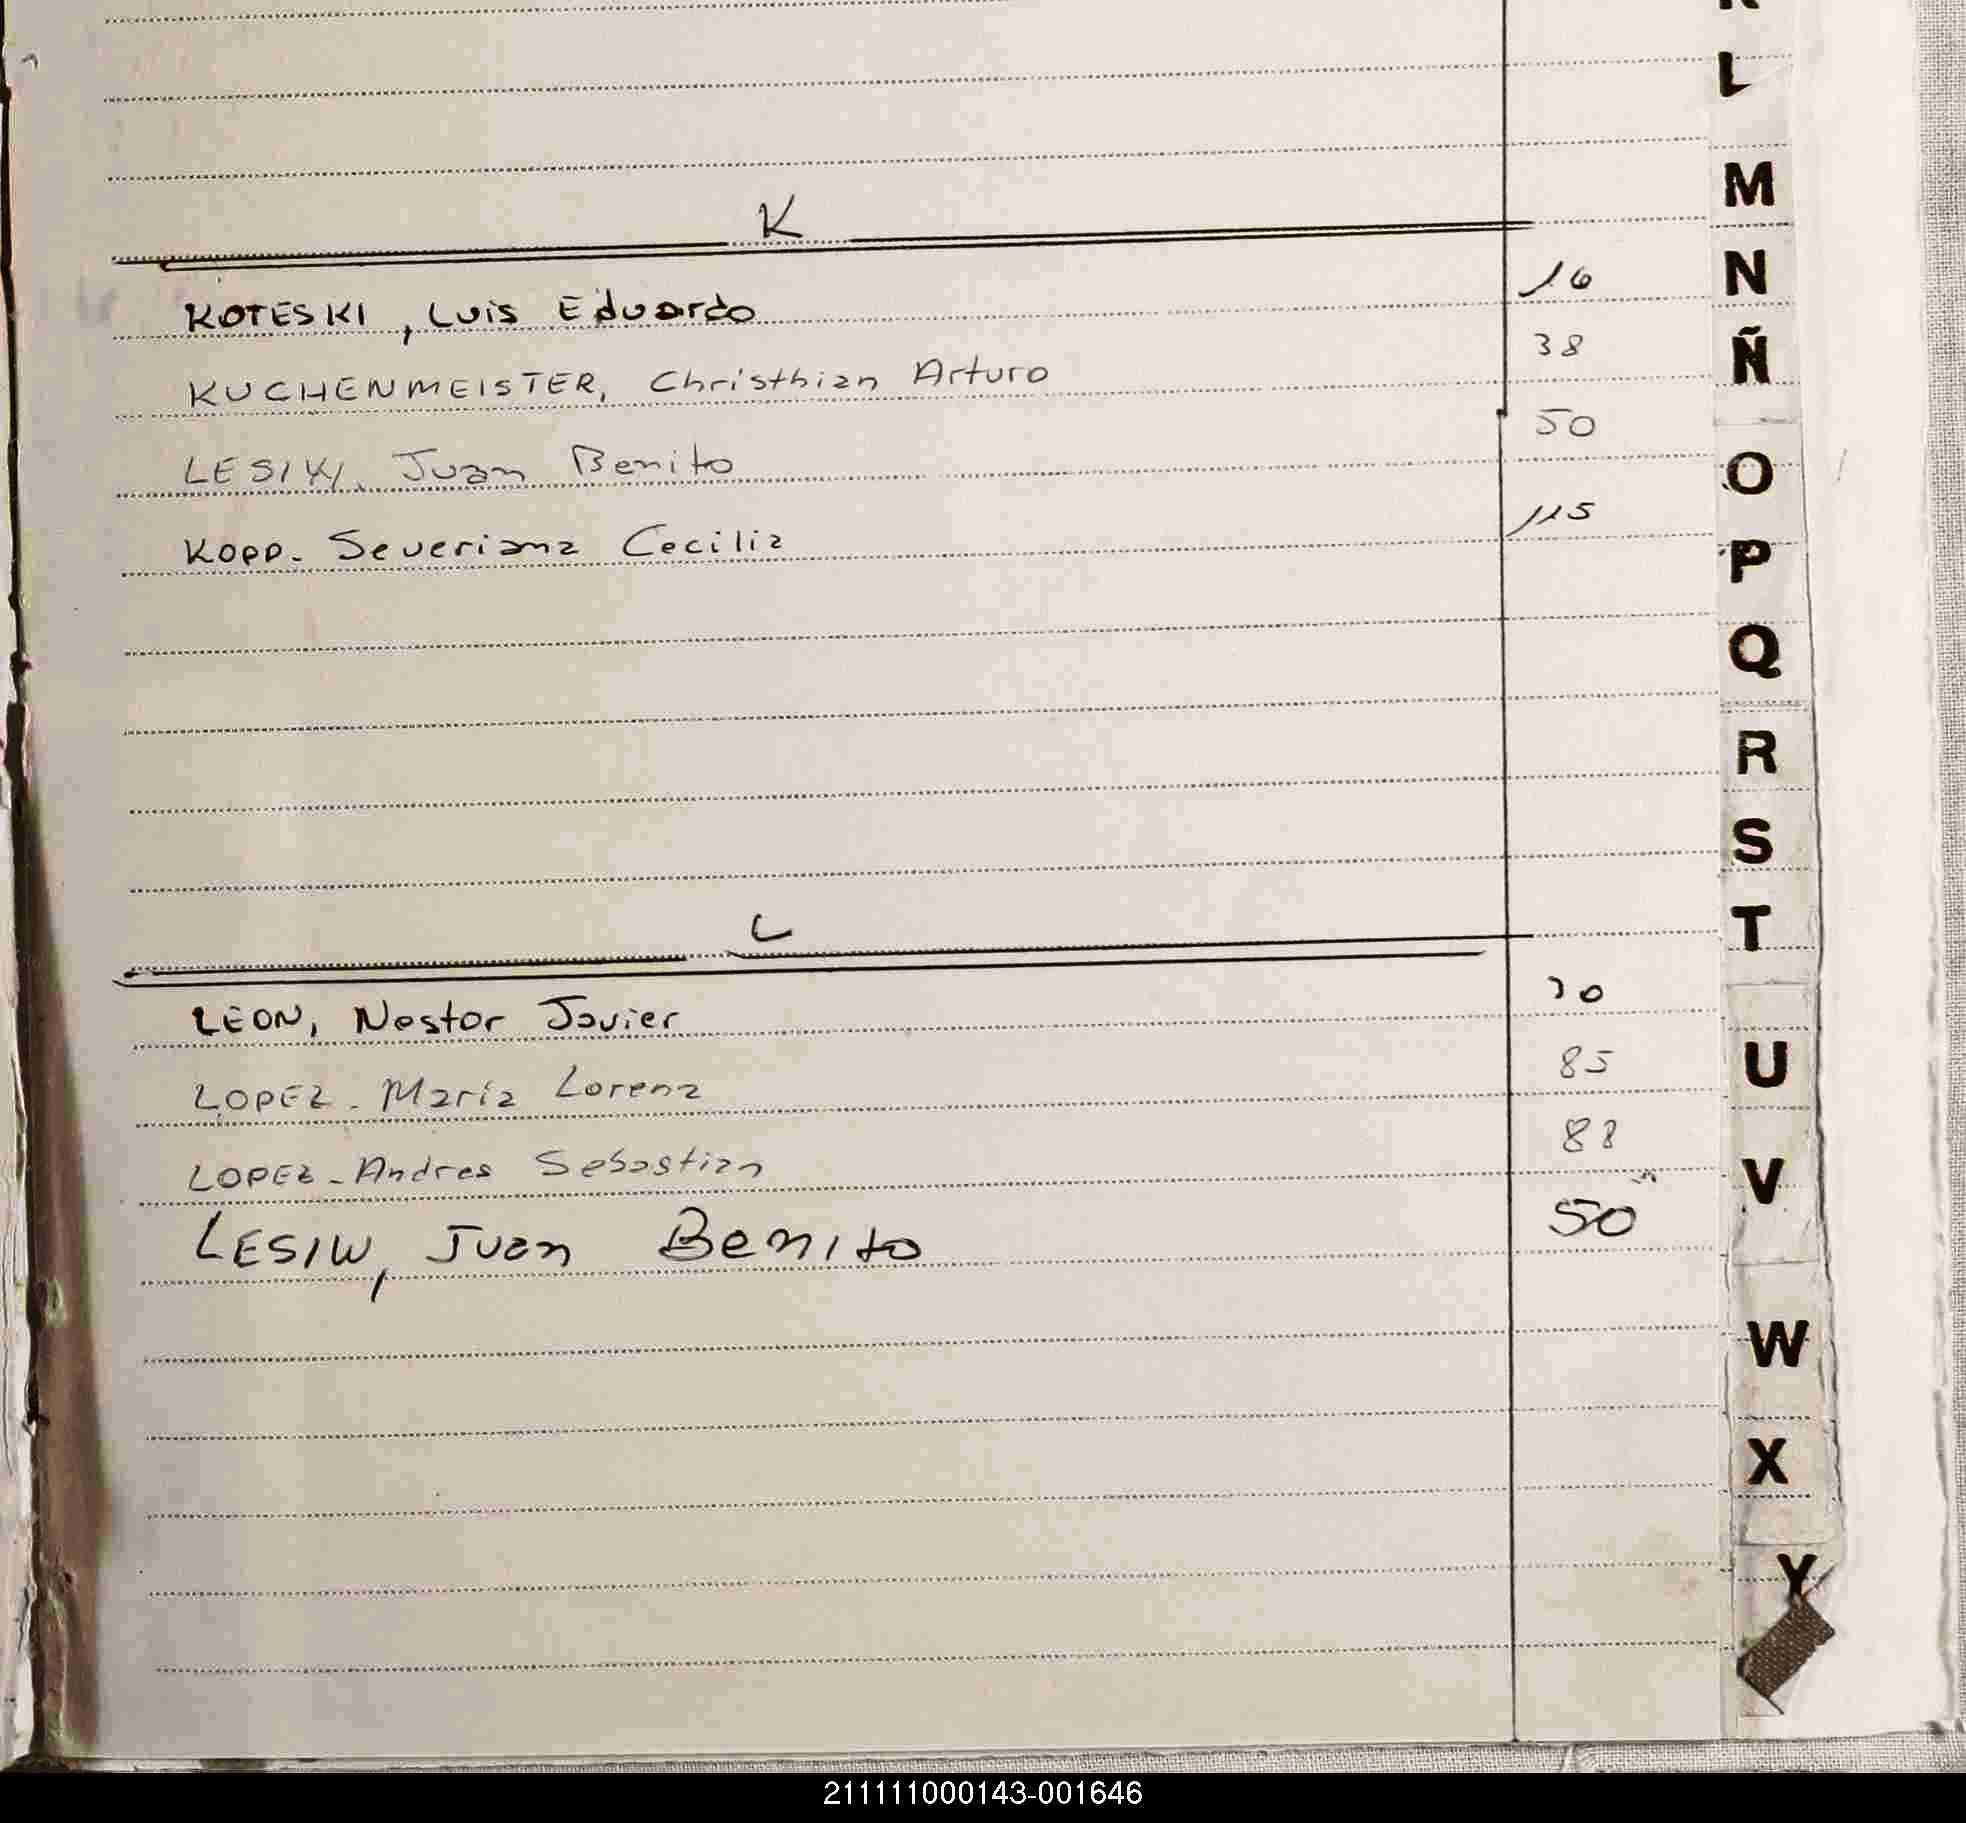 K
KOTESKI, Luis Eduardo 16
KUCHENMEISTER, Christhian Arturo 38
LESIW, Juan Benito 50
KOPP- Severiana Cecilia 115
L
LEON, Nestor Javier
LOPEZ- María Lorena 85
LOPEZ- Andres Sebastian 88
LESIW, Juan Benito 50
L
M
N
Ñ
O
P
Q
R
S
T
U
V
W
X
Y
211111000143-001646